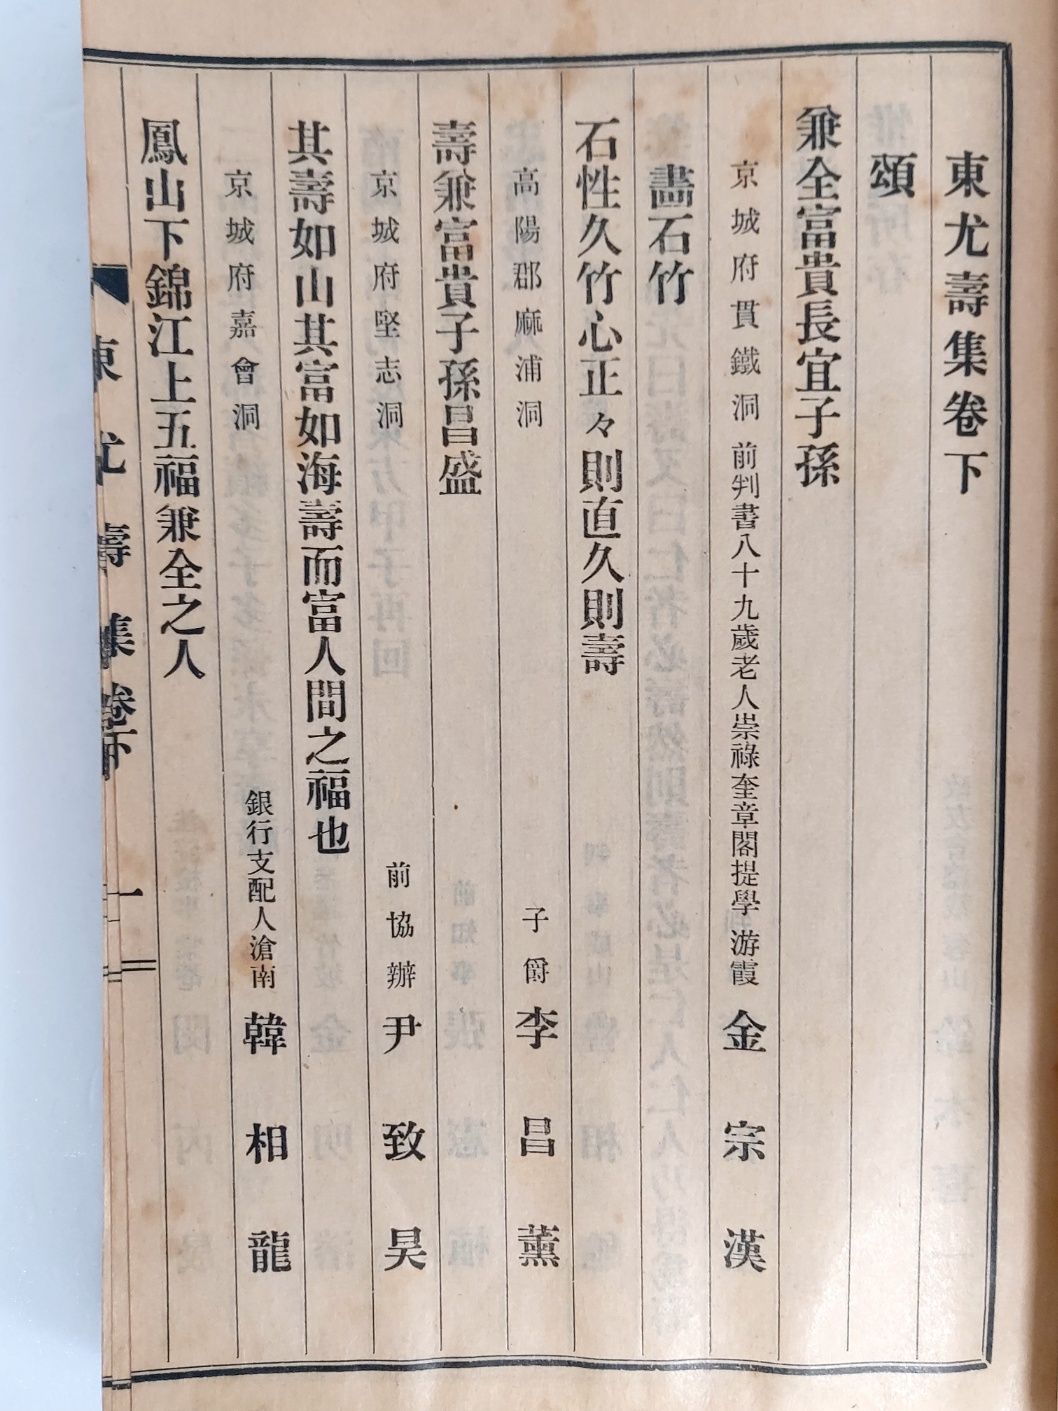 東尤壽集卷下
頌
兼全富貴長宜子孫
京城府貫鐵洞 前判書八十九歲老人崇祿奎章閣提學 游霞 金宗漢
畵石竹
石性久竹心正々則直久則壽
高陽郡麻浦洞 子爵 李昌薰
壽兼富貴子孫昌盛
京城府堅志洞 前協辦 尹致昊
其壽如山其富如海壽而富人間之福也
京城府嘉會洞 銀行支配人滄南 韓相龍
鳳山下錦江上五福兼全之人
東尤壽集卷下 一